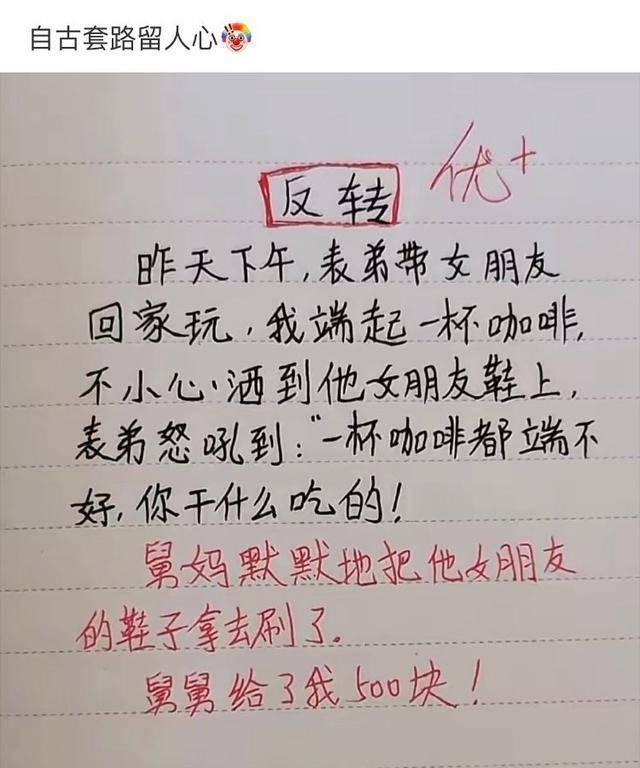 自古套路留人心🤡
反转 优+
昨天下午,表弟带女朋友
回家玩,我端起一杯咖啡,
不小心洒到他女朋友鞋上,
表弟怒吼到:“一杯咖啡都端不
好,你干什么吃的!
舅妈默默地把他女朋友
的鞋子拿去刷了。
舅舅给了我500块!